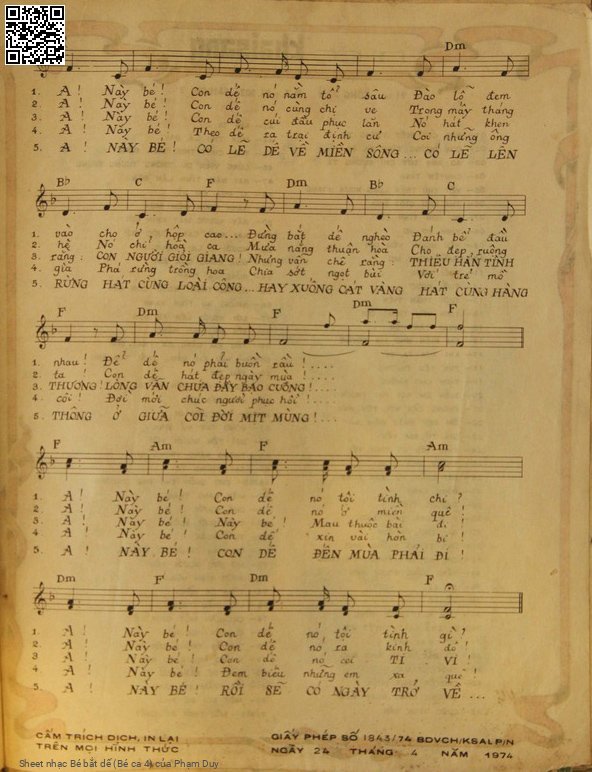 Dm
1. A! Này bé! Con dế nó nằm tổ sâu Đào lỗ đem
2. A! Này bé! Con dế nó cũng chỉ ve Trong mấy tháng
3. A! Này bé! Con dế cúi đầu phục lăn Nó hát khen
4. A! Này bé! Theo dế ra trại định cư Coi những ông
5. A! NÀY BÉ! CÓ LẼ DẾ VỀ MIỀN SÔNG... CÓ LẼ LÊN
Bb C F Dm Bb C
1. vào cho ở hộp cao... Đừng bắt dế nghèo Đánh bể đầu
2. hè Nó chỉ hoà ca Mưa nắng thuận hoà Cho đẹp ruộng
3. rằng: CON NGƯỜI GIỎI GIANG! Nhưng vẫn chê rằng: THIẾU HẲN TÌNH
4. già Phá rừng trồng hoa Chia sớt ngọt bùi Với trẻ mồ
5. RỪNG HÁT CÙNG LOÀI CÔNG... HAY XUỐNG CÁT VÀNG HÁT CÙNG HÀNG
F Dm F Dm F
1. nhau! Để dế nó phải buồn rầu!....
2. ta! Con dế hát đẹp ngày mùa!....
3. THƯƠNG! LÒNG VẪN CHƯA ĐẦY BAO CUỒNG!....
4. côi! Đợi mời chúc người phục hồi!....
5. THÔNG Ở GIỮA CÕI ĐỜI MỊT MÙNG!....
F Am F Am
1. A! Này bé! Con dế nó tội tình chi?
2. A! Này bé! Con dế nó ở miền quê!
3. A! Này bé! Này bé! Mau thuộc bài đi!
4. A! Này bé! Con dế xin vài hòn bi!
5. A! NÀY BÉ! CON DẾ ĐẾN MÙA PHẢI ĐI!
Dm F Dm F
1. A! Này bé! Con dế nó tội tình gì?
2. A! Này bé! Con dế nó ra kinh đô!
3. A! Này bé! Con dế nó coi TI VI!
4. A! Này bé! Đem biếu những em xa quê!
5. A! NÀY BÉ! RỒI SẼ CÓ NGÀY TRỞ VỀ...
CẤM TRÍCH DỊCH, IN LẠI
TRÊN MỌI HÌNH THỨC
GIẤY PHÉP SỐ 1843/74 BDVCH/KSALP/N
NGÀY 24 THÁNG 4 NĂM 1974
Sheet nhạc Bé bắt dế (Bé ca 4) của Phạm Duy